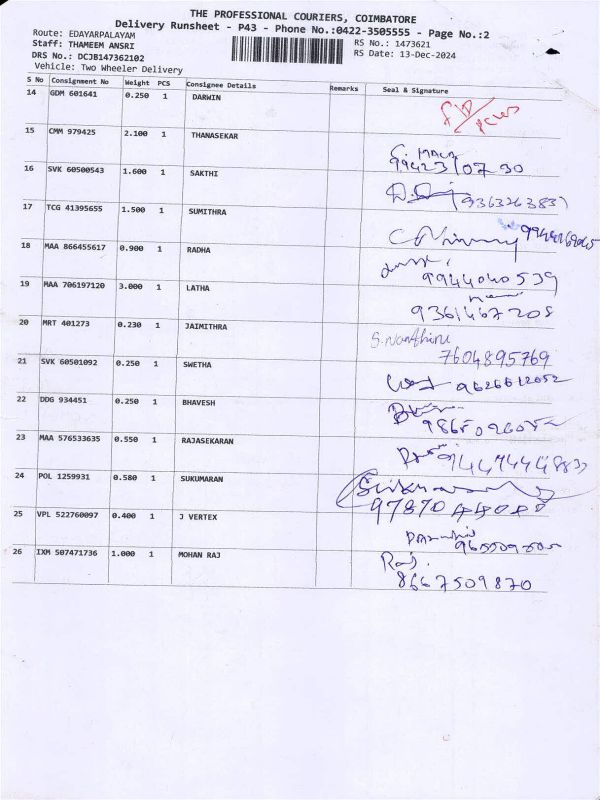 THE PROFESSIONAL COURIERS, COIMBATORE
Delivery Runsheet - P43 - Phone No.:0422-3505555 - Page No.:2
Route: EDAYARPALAYAM
Staff: THAMEEM ANSRI RS No.: 1473621
DRS No.: DCJB147362102 RS Date: 13-Dec-2024
Vehicle: Two Wheeler Delivery
S No Consignment No Weight PCS Consignee Details Remarks Seal & Signature
14 GDM 601641 0.250 1 DARWIN
15 CMM 979425 2.100 1 THANASEKAR
9942310730
16 SVK 60500543 1.600 1 SAKTHI
17 TCG 41395655 1.500 1 SUMITHRA
18 MAA 866455617 0.900 1 RADHA
9944040539
19 MAA 706197120 3.000 1 LATHA
9361467208
20 MRT 401273 0.230 1 JAIMITHRA
S.Nanthini
7604895769
21 SVK 60501092 0.250 1 SWETHA
9626612052
22 DDG 934451 0.250 1 BHAVESH
23 MAA 576533635 0.550 1 RAJASEKARAN
24 POL 1259931 0.580 1 SUKUMARAN
25 VPL 522760097 0.400 1 J VERTEX
26 IXM 507471736 1.000 1 MOHAN RAJ
Raj.
8667509870